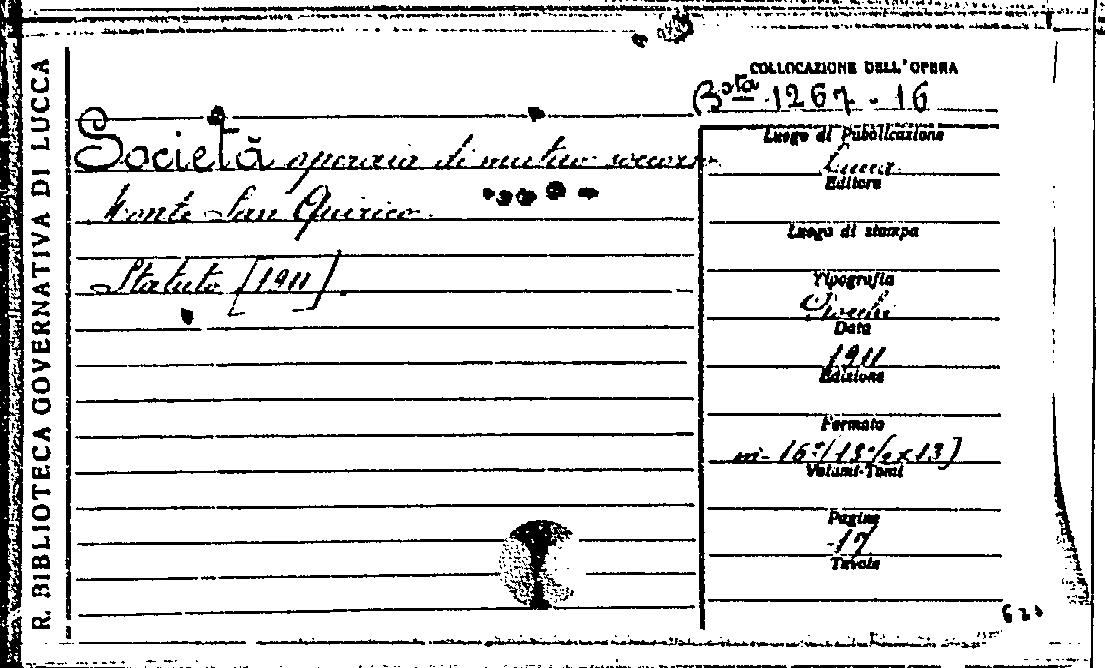 R. BIBLIOTECA GOVERNATIVA DI LUCCA
COLLOCAZIONE DELL'OPERA
Bta 1267 - 16
Società operaia di mutuo soccorso
Monte San Quirico.
Statuto [1911].
Luogo di Pubblicazione
Lucca
Editore
Luogo di stampa
Tipografia
Data
1911
Edizione
Formato
Volumi-Tomi
Pagine
17
Tavole